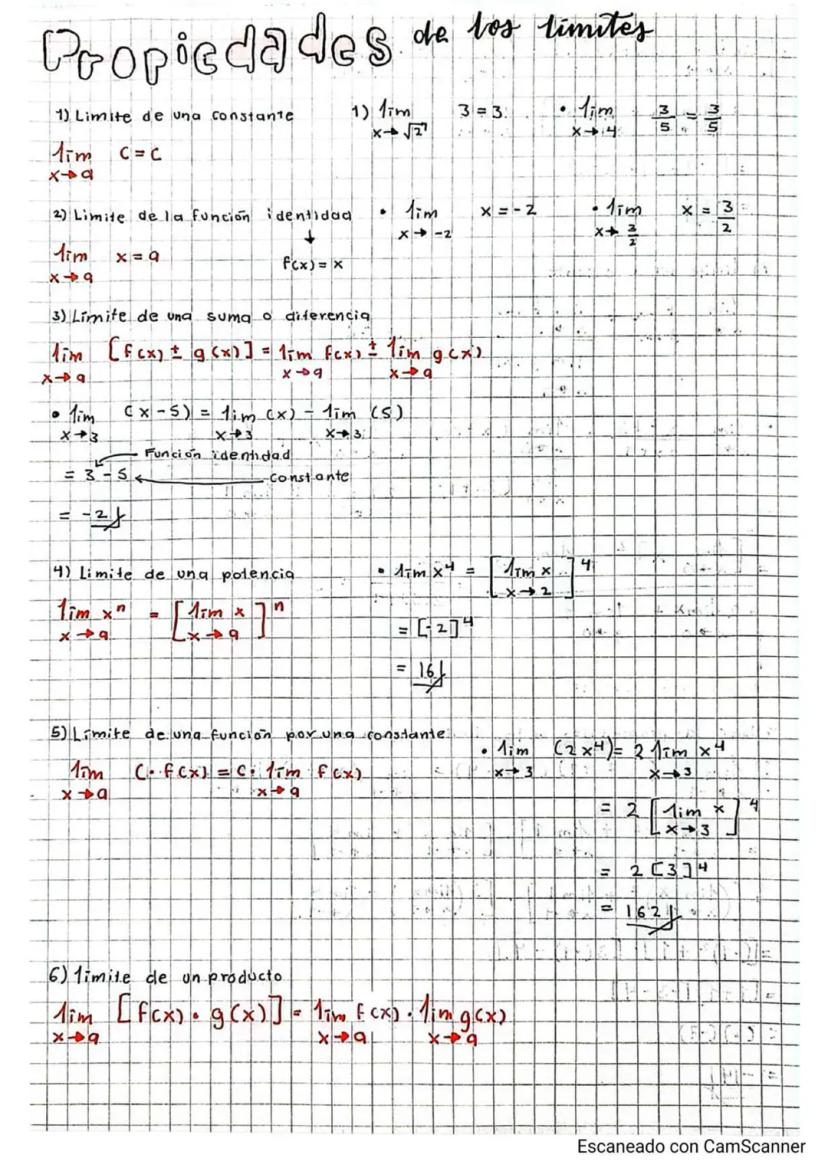 Propiedades de los limites
1) Limite de una constante
lim C = C
x→a
1) lim 3 = 3
x→√2
• lim 3/5 = 3/5
x→4
2) Limite de la función identidad
↓
f(x) = x
lim x = a
x→a
• lim x = -2
x→-2
• lim x = 3/2
x→3/2
3) Limite de una suma o diferencia
lim [f(x) ± g(x)] = lim f(x) ± lim g(x)
x→a x→a x→a
• lim (x-5) = lim (x) - lim (5)
x→3 x→3 x→3
Función identidad
= 3-5 constante
= -2
4) Limite de una potencia
lim xⁿ = [lim x]ⁿ
x→a x→a
• lim x⁴ = [lim x]⁴
x→2
= [-2]⁴
= 16
5) Limite de una función por una constante
lim C·f(x) = C· lim f(x)
x→a x→a
• lim (2x⁴) = 2 lim x⁴
x→3 x→3
= 2 [lim x]⁴
x→3
= 2[3]⁴
= 162
6) limite de un producto
lim [f(x) · g(x)] = lim f(x) · lim g(x)
x→a x→a x→a
Escaneado con CamScanner